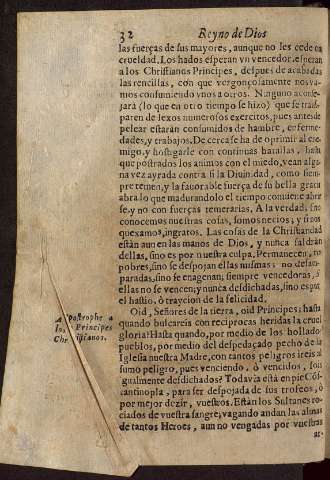 32 Reyno de Dios
las fuerças de sus mayores, aunque no les cede en
crueldad. Los hados esperan vn vencedor, esperan
a los Christianos Principes, despues de acabadas
las rencillas, con que vergonçosamente nos va-
mos consumiendo vnos a otros. Ninguno aconse-
jarà (lo que en otro tiempo se hizo) que se trass-
porten de lexos numerosos exercitos, pues antes de
pelear estaràn consumidos de hambre, enferme-
dades, y trabajos. De cerca se ha de oprimir al ene-
migo, y hostigarle con continuas batallas, hasta
que postrados los animos con el miedo, vean algu-
na vez ayrada contra sì la Diuinidad, como siem-
pre temen, y la fauorable fuerça de su bella gracia
abra lo que madurandolo el tiempo conuiene abrir
se, y no con fuerças temerarias. A la verdad, si no
conocemos nuestras cosas, somos necios; y si nos
quexamos, ingratos. Las cosas de la Christiandad
estàn aun en las manos de Dios, y nunca saldràn
dellas, sino es por nuestra culpa. Permanecen, no
pobres, sino se despojan ellas mismas: no desam-
paradas, sino se enagenan; siempre vencedoras, si
ellas no se vencen; y nunca desdichadas, sino es por
el hastio, ò traycion de la felicidad.
Oid, Señores de la tierra, oid Principes: hasta
Apostrophe a
los Principes
Christianos.
quando buscareis con reciprocas heridas la cruel
gloria? Hasta quando, por medio de los hollados
pueblos, por medio del despedaçado pecho de la
Iglesia nuestra Madre, con tantos peligros ireis al
sumo peligro, pues venciendo, ò vencidos, sois
igualmente desdichados? Todavia està en pie Cõs-
tantinopla, para ser despojada de sus trofeos, ò
por mejor dezir, vuestros. Estàn los Sultanes ro-
ciados de vuestra sangre; vagando andan las almas
de tantos Heroes, aun no vengadas por vuestras
ar-